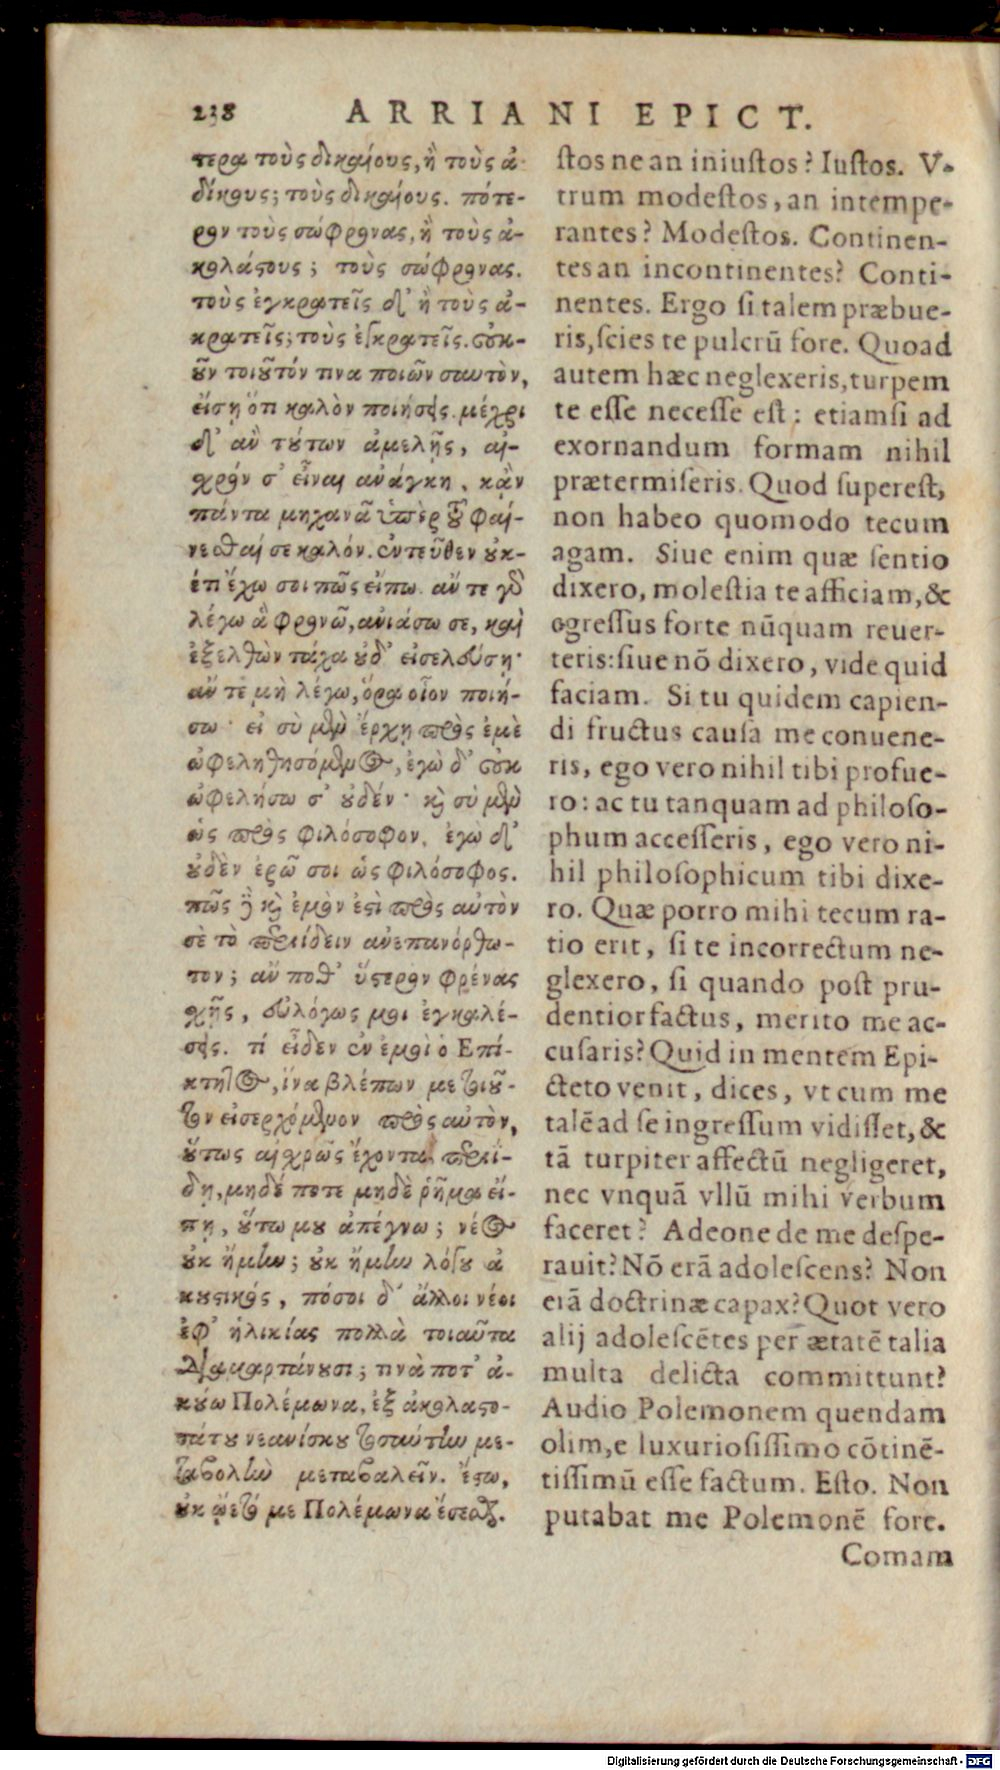 238 ARRIANI EPICT.
τερα τοὺς δικαίους, ἢ τοὺς ἀ-
δίκους; τοὺς δικαίους. πότε-
ρον τοὺς σώφρονας, ἢ τοὺς ἀ-
κολάστους; τοὺς σώφρονας.
τοὺς ἐγκρατεῖς δ' ἢ τοὺς ἀ-
κρατεῖς; τοὺς ἐγκρατεῖς. οὐκ-
οῦν τοιοῦτόν τινα ποιῶν σαυτὸν,
εἴσῃ ὅτι καλὸν ποιήσεις. μέχρι
δ' ἂν τούτων ἀμελῇς, αἰ-
χρόν σ' εἶναι ἀνάγκη, κἂν
πάντα μηχανᾷ ὑπὲρ τοῦ φαί-
νεσθαί σε καλόν. ἐντεῦθεν οὐκ-
έτι ἔχω σοι πῶς εἴπω. ἄν τε γὰρ
λέγω ἃ φρονῶ, ἀνιάσω σε, καὶ
ἐξελθὼν τάχα οὐδ' εἰσελεύσῃ·
ἄν τε μὴ λέγω, ὅρα οἷον ποιή-
σω· εἰ σὺ μὲν ἔρχῃ πρὸς ἐμὲ
ὠφεληθησόμενος, ἐγὼ δ' οὐκ
ὠφελήσω σ' οὐδέν· καὶ σὺ μὲν
ὡς πρὸς φιλόσοφον, ἐγω δ'
οὐδὲν ἐρῶ σοι ὡς φιλόσοφος.
πῶς δὲ καὶ ἐμὸν ἐστὶ πρὸς αὐτὸν
σὲ τὸ περιίδειν ἀνεπανόρθω-
τον; ἄν ποθ' ὕστερον φρένας
χῇς, εὐλόγως μοι ἐγκαλέ-
σεις. τί εἶδεν ἐν ἐμοὶ ὁ Επί-
κτητος, ἵνα βλέπων με τοιοῦ-
τον εἰσερχόμενον πρὸς αὐτὸν,
οὕτως αἰχρῶς ἔχοντα περιί-
δῃ, μηδέ ποτε μηδὲ ῥῆμα εἴ-
πῃ, οὕτω μου ἀπέγνω; νέος
οὐκ ἤμην; οὐκ ἤμην λόγου ἀ
κουστικός, πόσοι δ' ἄλλοι νέοι
ἐφ' ἡλικίας πολλὰ τοιαῦτα
διαμαρτάνουσι; τινὰ ποτ' ἀ-
κούω Πολέμωνα, ἐξ ἀκολαστο-
τάτου νεανίσκου τοσαύτην με-
ταβολὴν μεταβαλεῖν. ἔστω,
οὐκ ᾤετό με Πολέμωνα ἔσεσθαι.
stos ne an iniustos? Iustos. V-
trum modestos, an intempe-
rantes? Modestos. Continen-
tes an incontinentes? Conti-
nentes. Ergo si talem præbue-
ris, scies te pulcrū fore. Quoad
autem hæc neglexeris, turpem
te esse necesse est: etiamsi ad
exornandum formam nihil
prætermiseris. Quod superest,
non habeo quomodo tecum
agam. Siue enim quæ sentio
dixero, molestia te afficiam, &
egressus forte nūquam reuer-
teris: siue nō dixero, vide quid
faciam. Si tu quidem capien-
di fructus causa me conuene-
ris, ego vero nihil tibi profue-
ro: ac tu tanquam ad philoso-
phum accesseris, ego vero ni-
hil philosophicum tibi dixe-
ro. Quæ porro mihi tecum ra-
tio erit, si te incorrectum ne-
glexero, si quando post pru-
dentior factus, merito me ac-
cusaris? Quid in mentem Epi-
cteto venit, dices, vt cum me
talē ad se ingressum vidisset, &
tā turpiter affectū negligeret,
nec vnquā vllū mihi verbum
faceret? Adeone de me despe-
rauit? Nō erā adolescens? Non
erā doctrinæ capax? Quot vero
alij adolescētes per ætatē talia
multa delicta committunt?
Audio Polemonem quendam
olim, e luxuriosissimo cōtinē-
tissimū esse factum. Esto. Non
putabat me Polemonē fore.
Comam
Digitalisierung gefördert durch die Deutsche Forschungsgemeinschaft - DFG